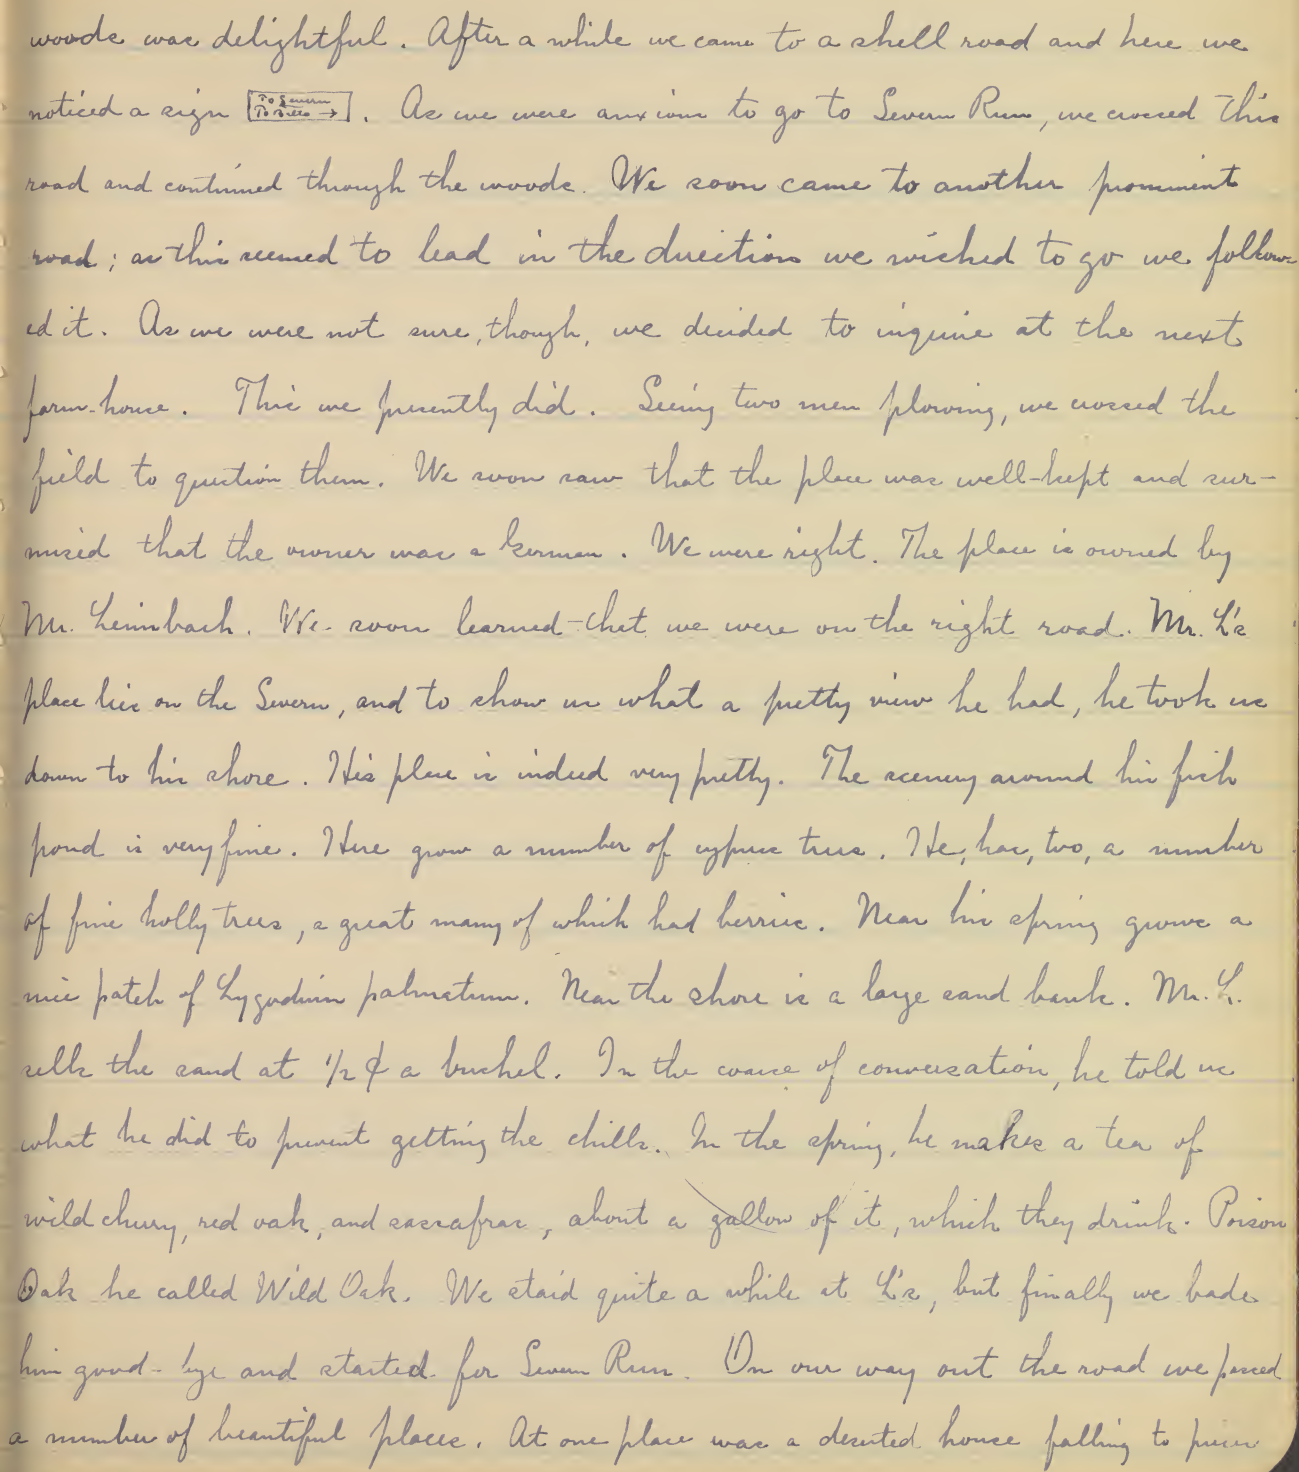 woods was delightful. After a while we came to a shell road and here we
noticed a sign [To Severn →]. As we were anxious to go to Severn Run, we crossed this
road and continued through the woods. We soon came to another prominent
road; as this seemed to lead in the direction we wished to go we follow-
ed it. As we were not sure, though, we decided to inquire at the next
farm-house. This we presently did. Seeing two men plowing, we crossed the
field to question them. We soon saw that the place was well-kept and sur-
mised that the owner was a German. We were right. The place is owned by
Mr. Leimbach. We soon learned that we were on the right road. Mr. L's
place lies on the Severn, and to show us what a pretty view he had, he took us
down to his shore. His place is indeed very pretty. The scenery around his fish
pond is very fine. Here grow a number of cypress trees. He, has, two, a number
of fine holly trees, a great many of which had berries. Near his spring grows a
nice patch of Lygodium palmatum. Near the shore is a large sand bank. Mr. L.
sells the sand at 1/2 ¢ a bushel. In the course of conversation, he told us
what he did to prevent getting the chills. In the spring, he makes a tea of
wild cherry, red oak, and sassafras, about a gallon of it, which they drink. Poison
Oak he called Wild Oak. We staid quite a while at L's, but finally we bade
him good-bye and started for Severn Run. On our way out the road we passed
a number of beautiful places. At one place was a deserted house falling to pieces